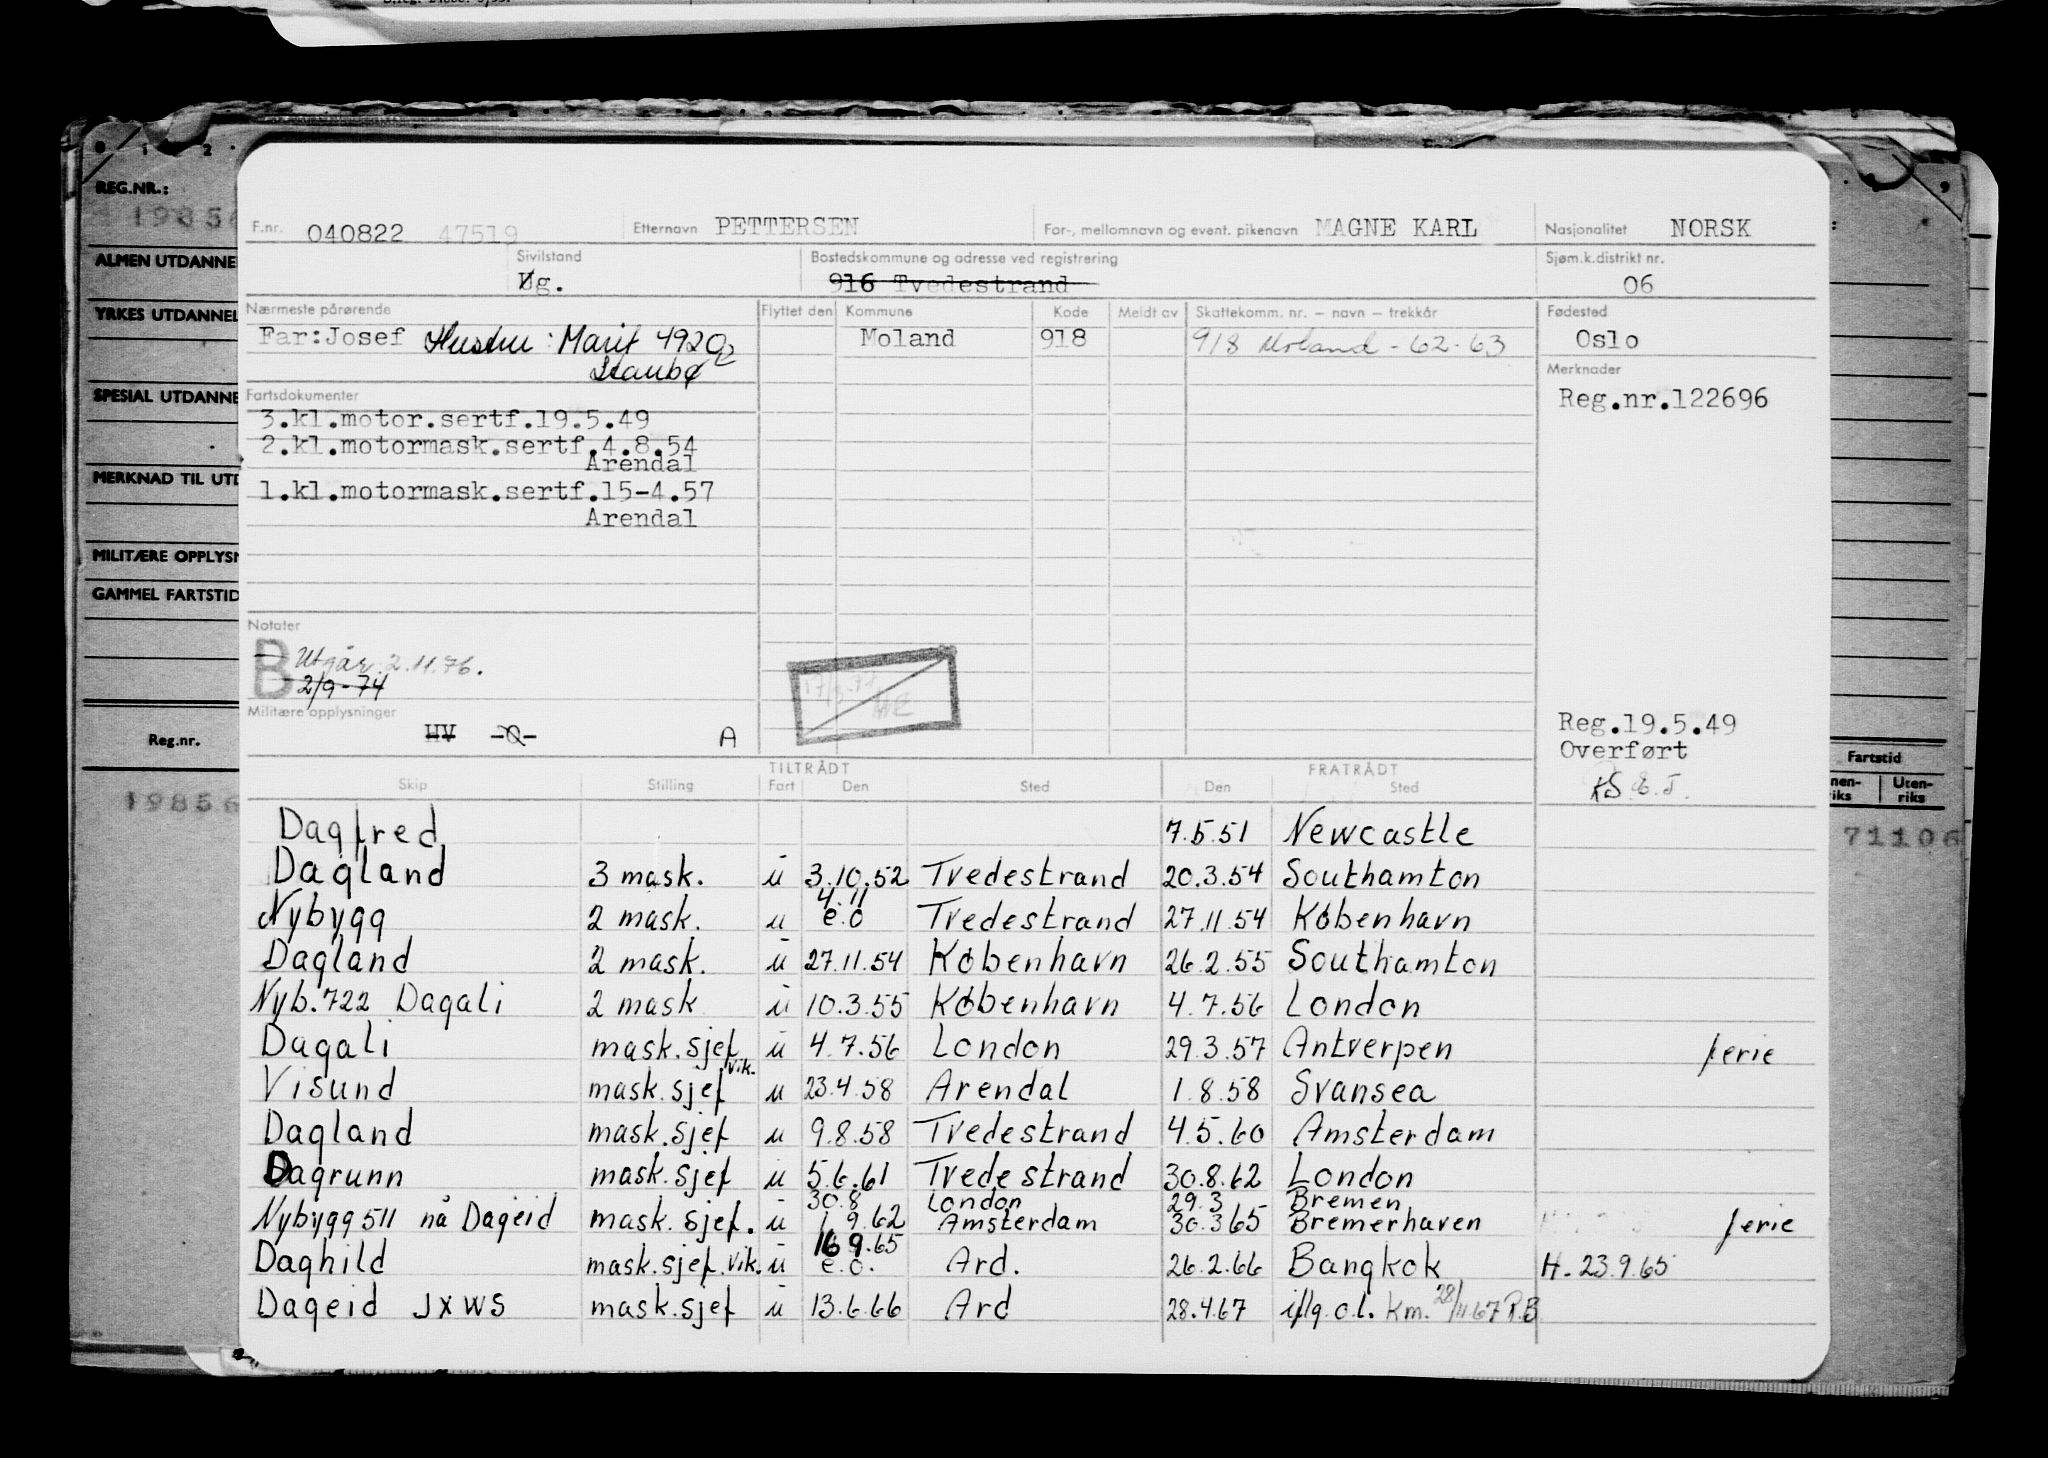 REG.NR.:
ALMEN UTDANNE
YRKES UTDANNEL
SPESIAL UTDANNE
MERKNAD TIL UTD
MILITÆRE OPPLYSN
GAMMEL FARTSTID
Reg.nr.
19856
F.nr. 040822 47519 Etternavn PETTERSEN For-, mellomnavn og event. pikenavn MAGNE KARL Nasjonalitet NORSK
Sivilstand Ug. Bostedskommune og adresse ved registrering 916 Tvedestrand Sjøm.k.distrikt nr. 06
Nærmeste pårørende Flyttet den Kommune Kode Meldt av Skattekomm. nr. – navn – trekkår Fødested
Far:Josef Hustru: Marit 4920 Moland 918 918 Moland - 62-63 Oslo
Staubø
Merknader
Fartsdokumenter
Reg.nr.122696
3.kl.motor.sertf.19.5.49
2.kl.motormask.sertf.4.8.54
Arendal
1.kl.motormask.sertf.15-4.57
Arendal
Notater
B Utgår 2.11.76.
2/9-74
Militære opplysninger
HV A
Reg.19.5.49
Overført
Skip Stilling TILTRÅDT Fart Den Sted FRATRÅDT Den Sted
Dagfred 7.5.51 Newcastle
Dagland 3 mask. u 3.10.52 Tvedestrand 20.3.54 Southamton
4.11
Nybygg 2 mask. u e.o Tvedestrand 27.11.54 København
Dagland 2 mask. u 27.11.54 København 26.2.55 Southamton
Nyb.722 Dagali 2 mask u 10.3.55 København 4.7.56 London
Dagali mask.sjef u 4.7.56 London 29.3.57 Antverpen ferie
vik.
Visund mask.sjef u 23.4.58 Arendal 1.8.58 Svansea
Dagland mask.sjef u 9.8.58 Tvedestrand 4.5.60 Amsterdam
Dagrunn mask.sjef u 5.6.61 Tvedestrand 30.8.62 London
30.8 London 29.3 Bremen
Nybygg 511 nå Dageid mask.sjef. u 1.9.62 Amsterdam 30.3.65 Bremerhaven ferie
16.9.65
Daghild mask.sjef.vik. u e.o. Ard. 26.2.66 Bangkok H. 23.9.65
Dageid JXWS mask.sjef u 13.6.66 Ard 28.4.67 iflg.o.l. Km. 28/11.67 R.B
Fartstid
nen-riks Uten-riks
71106